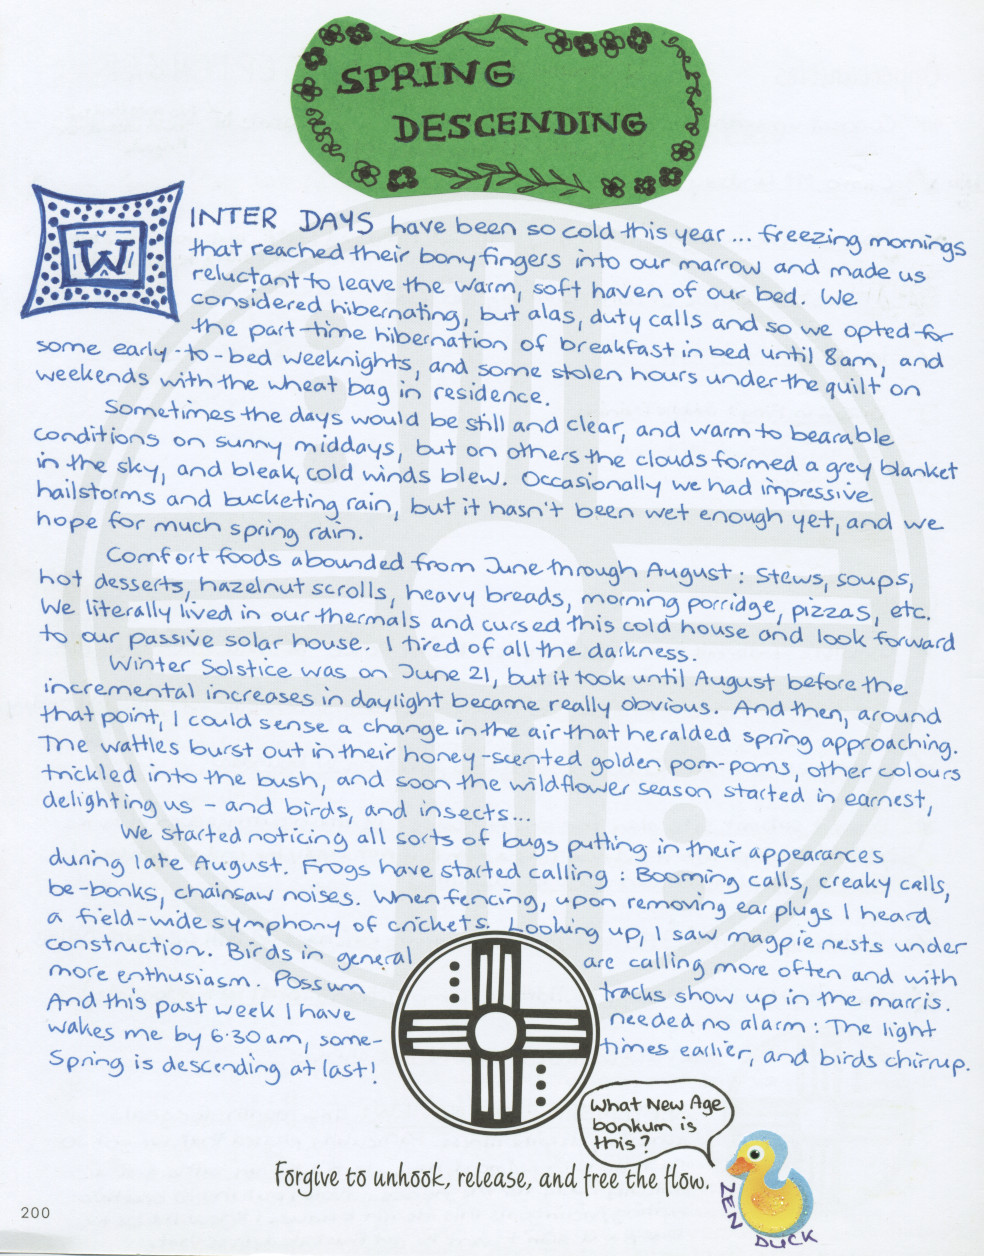 SPRING
DESCENDING
WINTER DAYS have been so cold this year... freezing mornings
that reached their bony fingers into our marrow and made us
reluctant to leave the warm, soft haven of our bed. We
considered hibernating, but alas, duty calls and so we opted for
the part-time hibernation of breakfast in bed until 8am, and
some early-to-bed weeknights, and some stolen hours under the quilt on
weekends with the wheat bag in residence.
Sometimes the days would be still and clear, and warm to bearable
conditions on sunny middays, but on others the clouds formed a grey blanket
in the sky, and bleak, cold winds blew. Occasionally we had impressive
hailstorms and bucketing rain, but it hasn't been wet enough yet, and we
hope for much spring rain.
Comfort foods abounded from June through August: Stews, soups,
hot desserts, hazelnut scrolls, heavy breads, morning porridge, pizzas, etc.
We literally lived in our thermals and cursed this cold house and look forward
to our passive solar house. I tired of all the darkness.
Winter Solstice was on June 21, but it took until August before the
incremental increases in daylight became really obvious. And then, around
that point, I could sense a change in the air that heralded spring approaching.
The wattles burst out in their honey-scented golden pom-poms, other colours
trickled into the bush, and soon the wildflower season started in earnest,
delighting us - and birds, and insects...
We started noticing all sorts of bugs putting in their appearances
during late August. Frogs have started calling: Booming calls, creaky calls,
be-bonks, chainsaw noises. When fencing, upon removing ear plugs I heard
a field-wide symphony of crickets. Looking up, I saw magpie nests under
construction. Birds in general are calling more often and with
more enthusiasm. Possum tracks show up in the marris.
And this past week I have needed no alarm: The light
wakes me by 6.30am, some-times earlier, and birds chirrup.
Spring is descending at last!
What New Age
bonkum is
this?
Forgive to unhook, release, and free the flow.
ZEN
DUCK
200